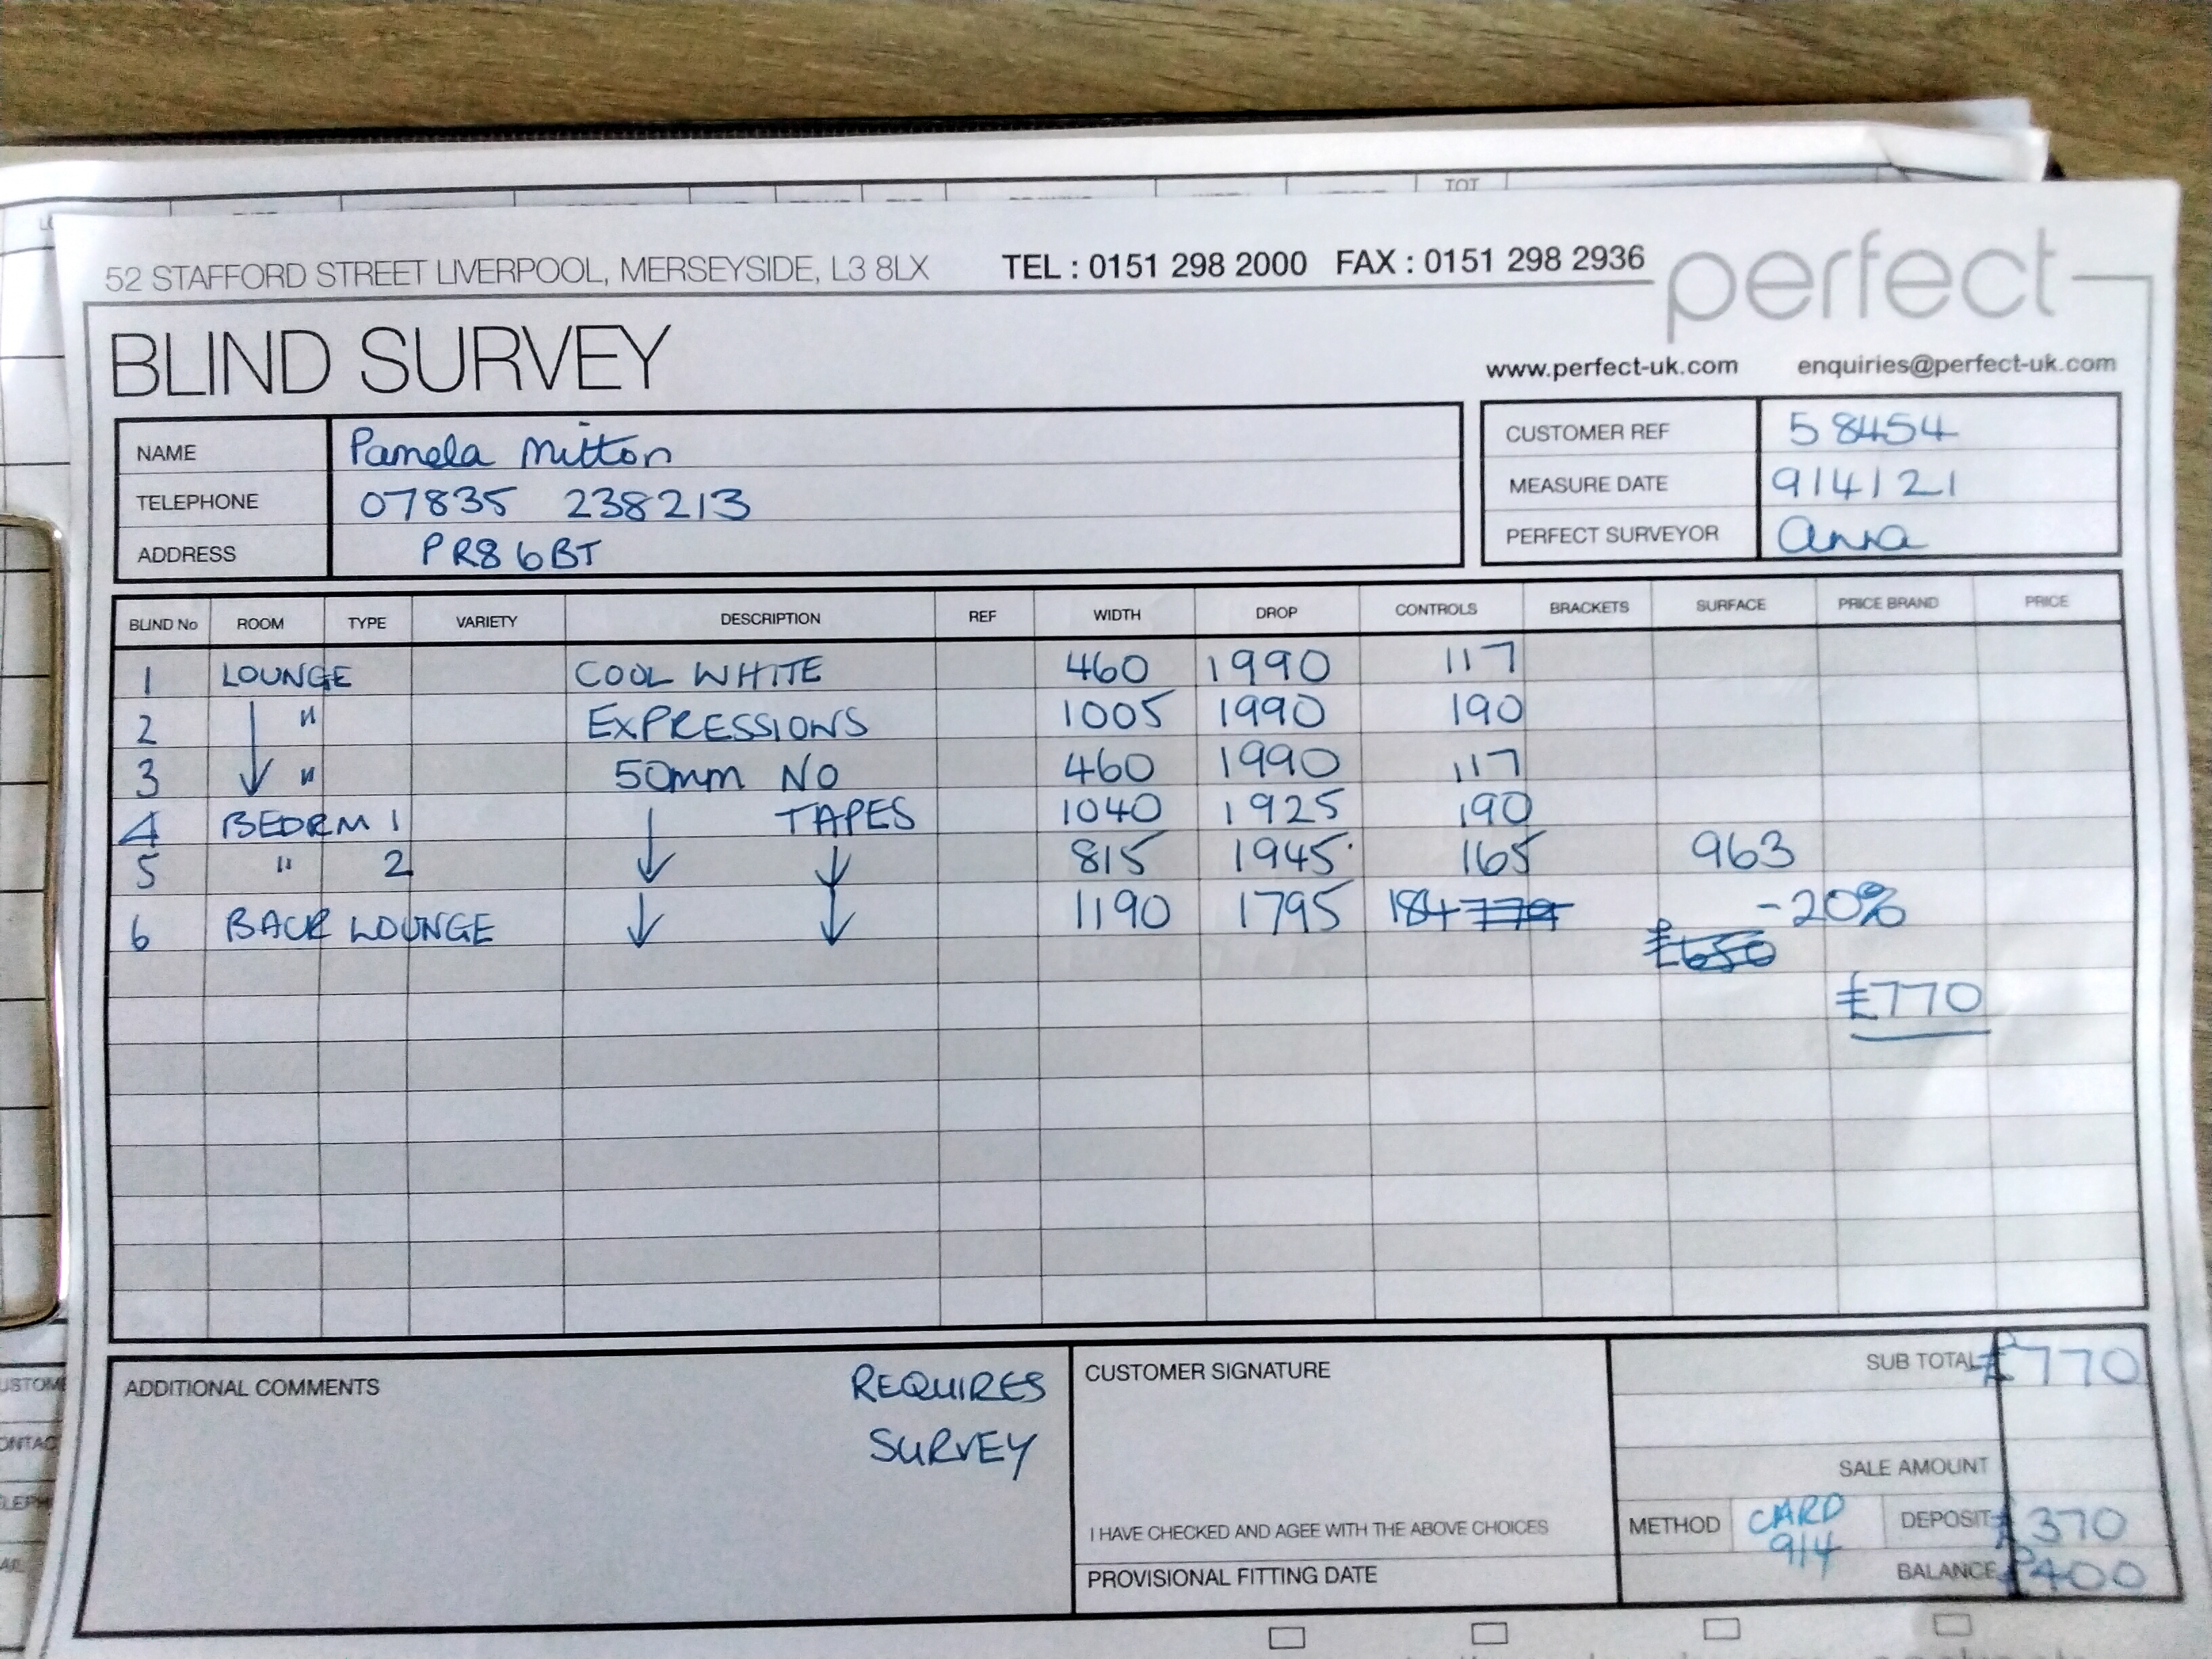 TOT
52 STAFFORD STREET LIVERPOOL, MERSEYSIDE, L3 8LX TEL : 0151 298 2000 FAX : 0151 298 2936 perfect
BLIND SURVEY
www.perfect-uk.com enquiries@perfect-uk.com
NAME Pamela Mitton
TELEPHONE 07835 238213
ADDRESS PR8 6BT
CUSTOMER REF 58454
MEASURE DATE 9/4/21
PERFECT SURVEYOR Anna
BLIND No ROOM TYPE VARIETY DESCRIPTION REF WIDTH DROP CONTROLS BRACKETS SURFACE PRICE BRAND PRICE
1 LOUNGE COOL WHITE 460 1990 117
2 " EXPRESSIONS 1005 1990 190
3 " 50mm NO 460 1990 117
4 BEDRM 1 TAPES 1040 1925 190
5 " 2 815 1945 165 963
6 BACK LOUNGE 1190 1795 184 -20%
£650
£770
ADDITIONAL COMMENTS REQUIRES
SURVEY
CUSTOMER SIGNATURE
I HAVE CHECKED AND AGEE WITH THE ABOVE CHOICES
PROVISIONAL FITTING DATE
SUB TOTAL £770
SALE AMOUNT
METHOD CARD 9/4 DEPOSIT £370
BALANCE £400